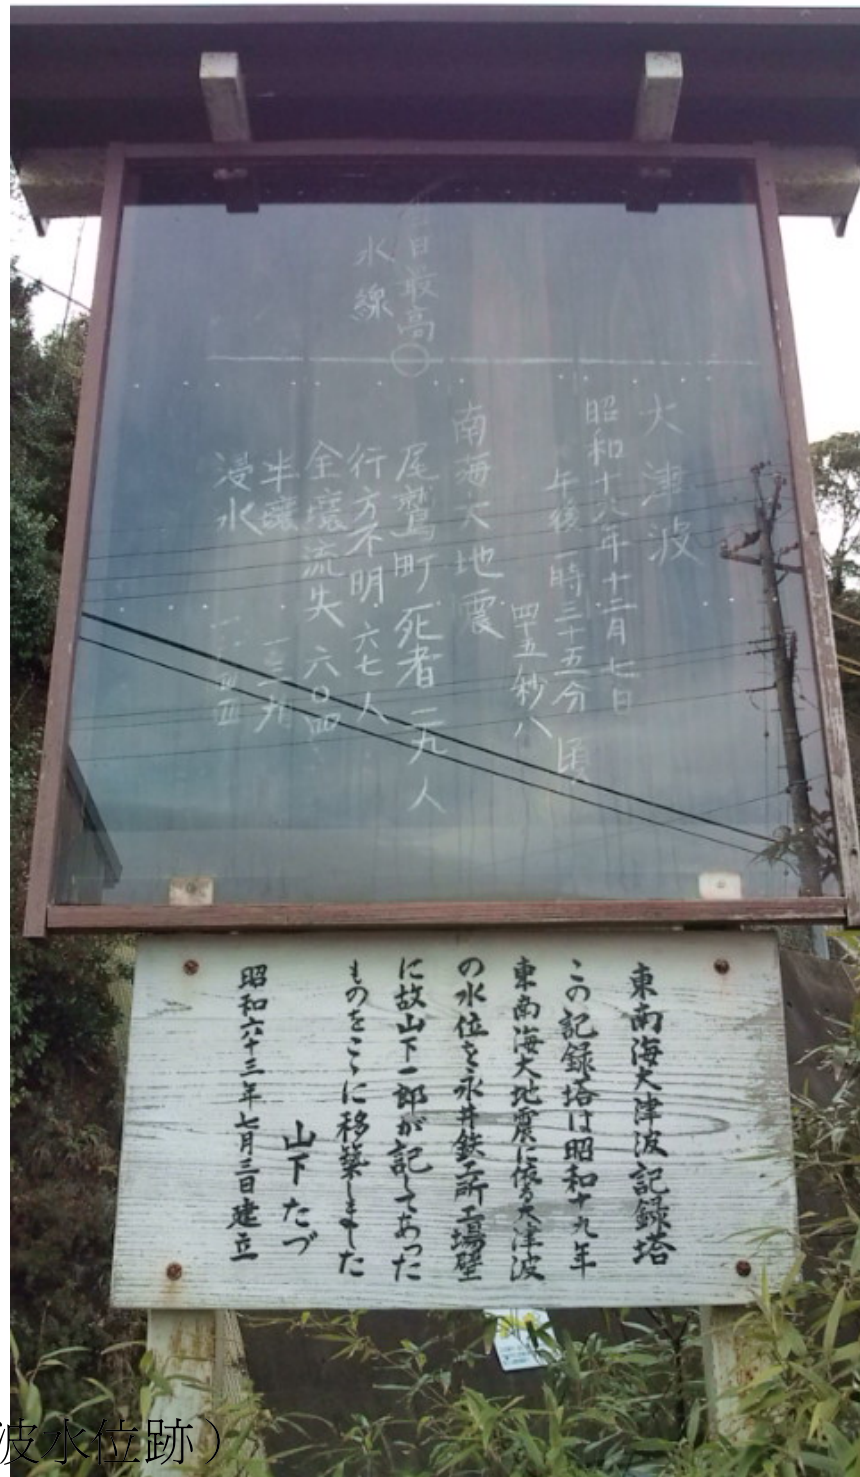 当日最高
水線
大津波
昭和十八年十二月七日
午後一時三十五分頃
四十五秒八
南海大地震
尾鷲町 死者 二九人
行方不明 六七人
全壊流失 六〇四
半壊
浸水
東南海大津波記録塔
この記録塔は昭和十九年
東南海大地震に依る大津波
の水位を永井鉄工所工場壁
に故山下一郎が記してあった
ものをここに移築しました
山下たづ
昭和六十三年七月三日建立
波水位跡）